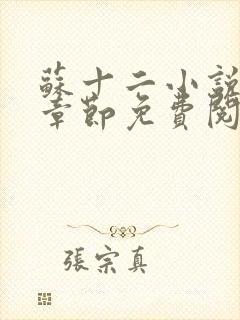 蘇十二小說
章節免費閱
張宗真